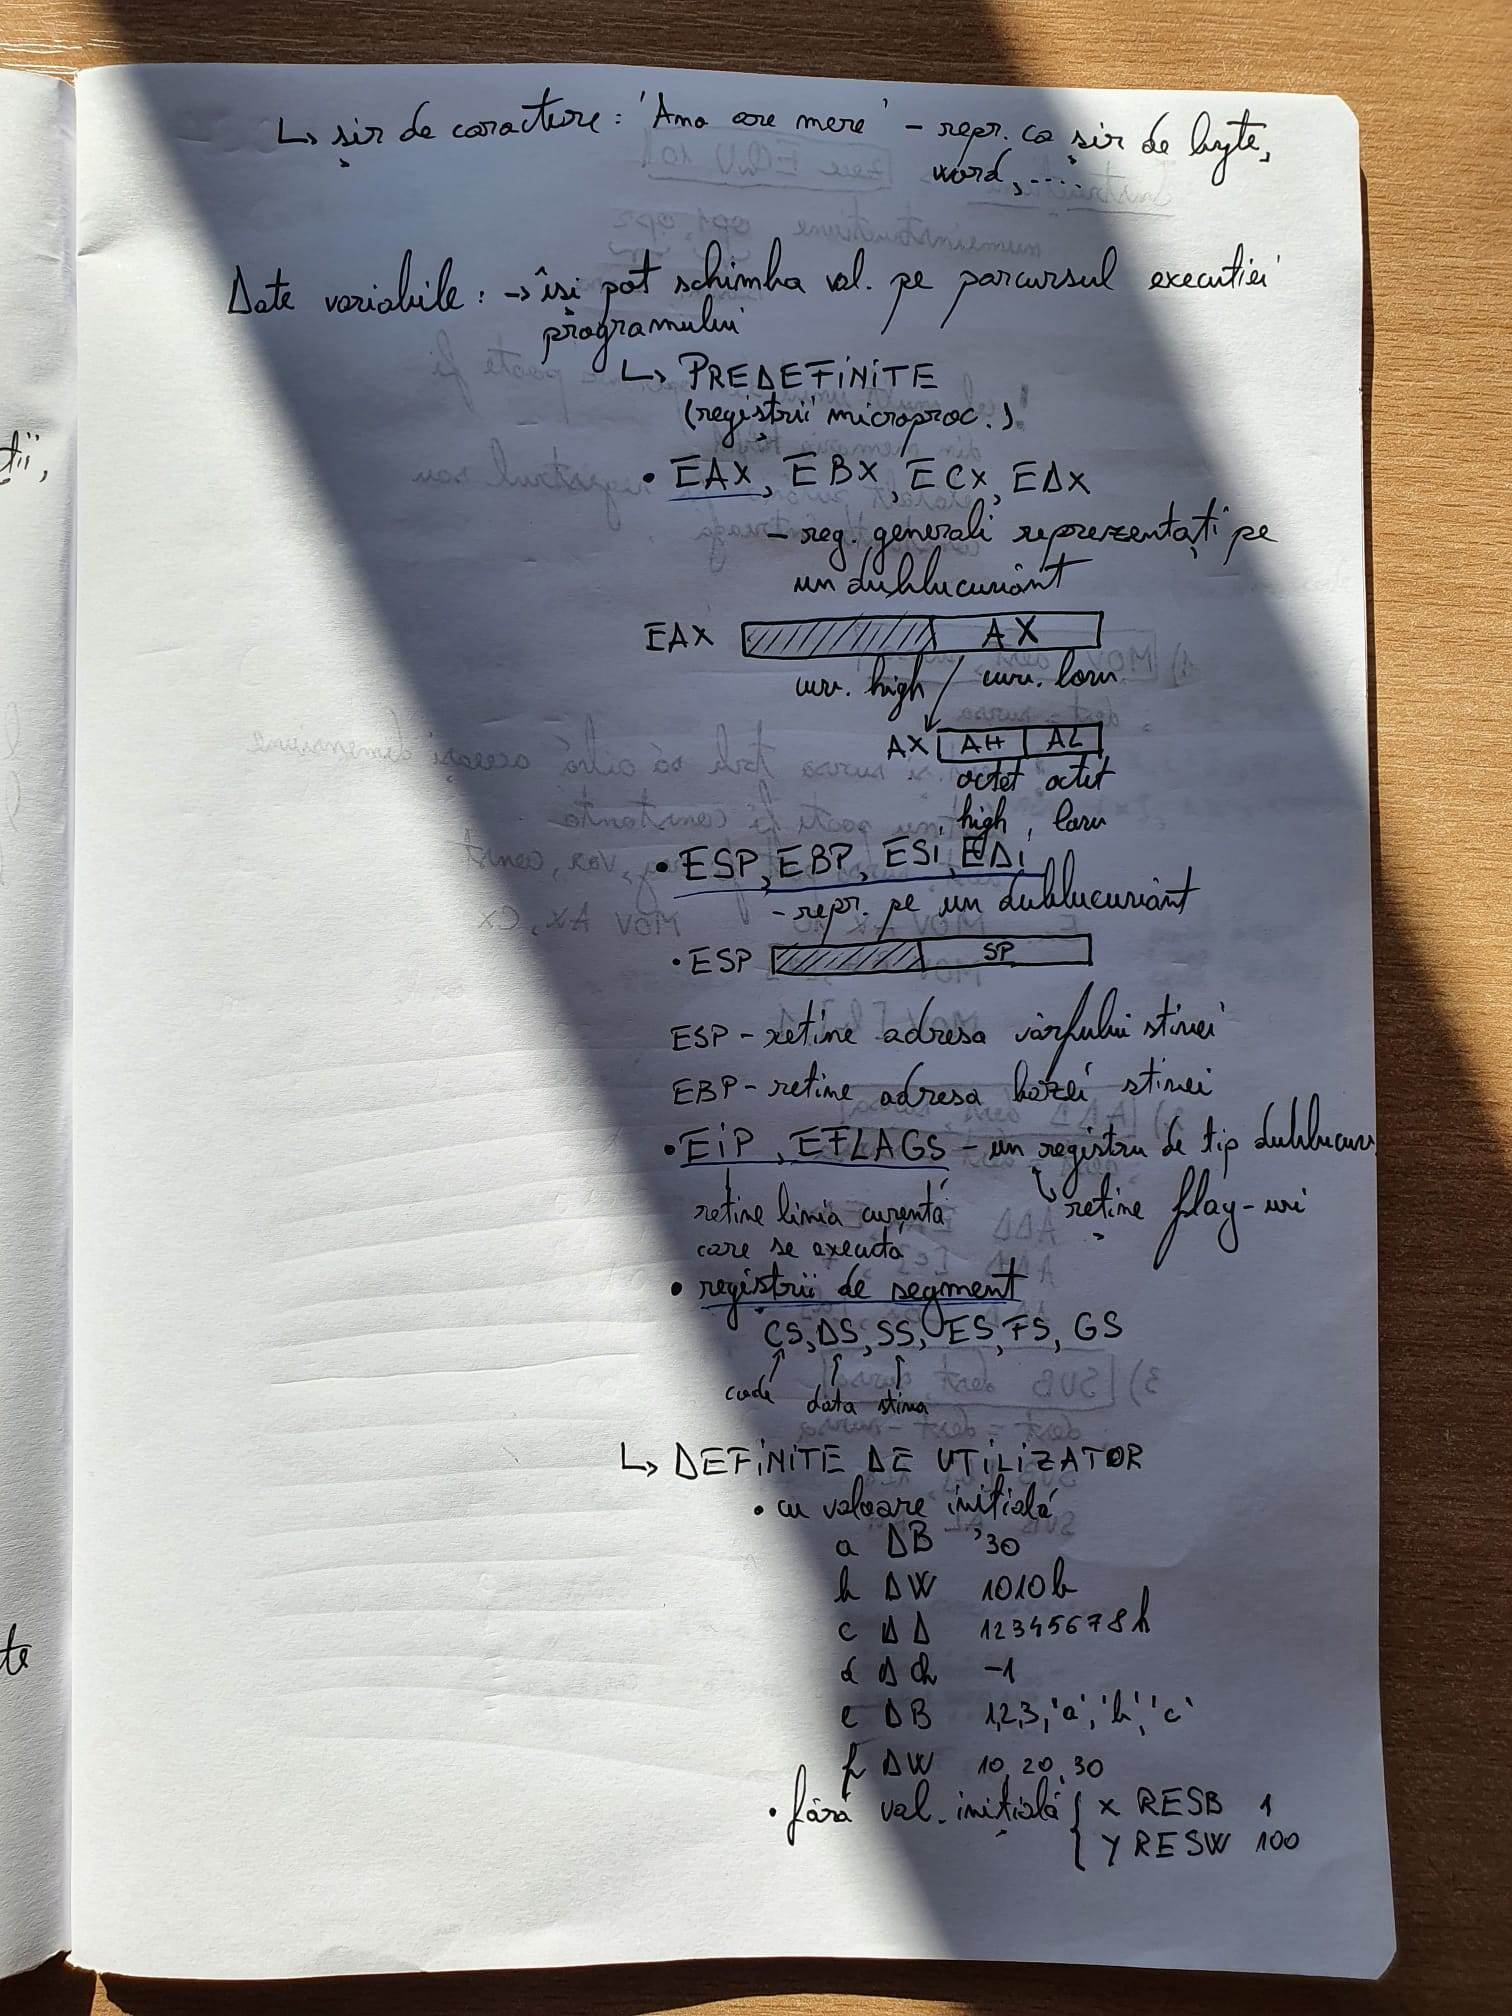 ↳ șir de caractere: 'Ana are mere' – repr. ca șir de byte,
word, .....
Date variabile: → își pot schimba val. pe parcursul executiei
programului
↳ PREDEFINITE
(regiștrii microproc.)
• EAX, EBX, ECX, EDX
– reg. generali reprezentați pe
un dublucuvânt
EAX AX
cuv. high cuv. low
AX AH AL
octet octet
high low
• ESP, EBP, ESI, EDI
– repr. pe un dublucuvânt
• ESP SP
ESP – retine adresa vârfului stivei
EBP – retine adresa bazei stivei
• EIP, EFLAGS – un registru de tip dublucuv.
retine linia curentă ↳ reține flag-uri
care se execută
• regiștrii de segment
CS, DS, SS, ES, FS, GS
code data stiva
↳ DEFINITE DE UTILIZATOR
• cu valoare inițială
a DB 30
b DW 1010b
c DD 12345678h
d DQ -1
e DB 1,2,3,'a','b','c'
f DW 10, 20, 30
• fără val. inițială { x RESB 1
y RESW 100
tii,
te